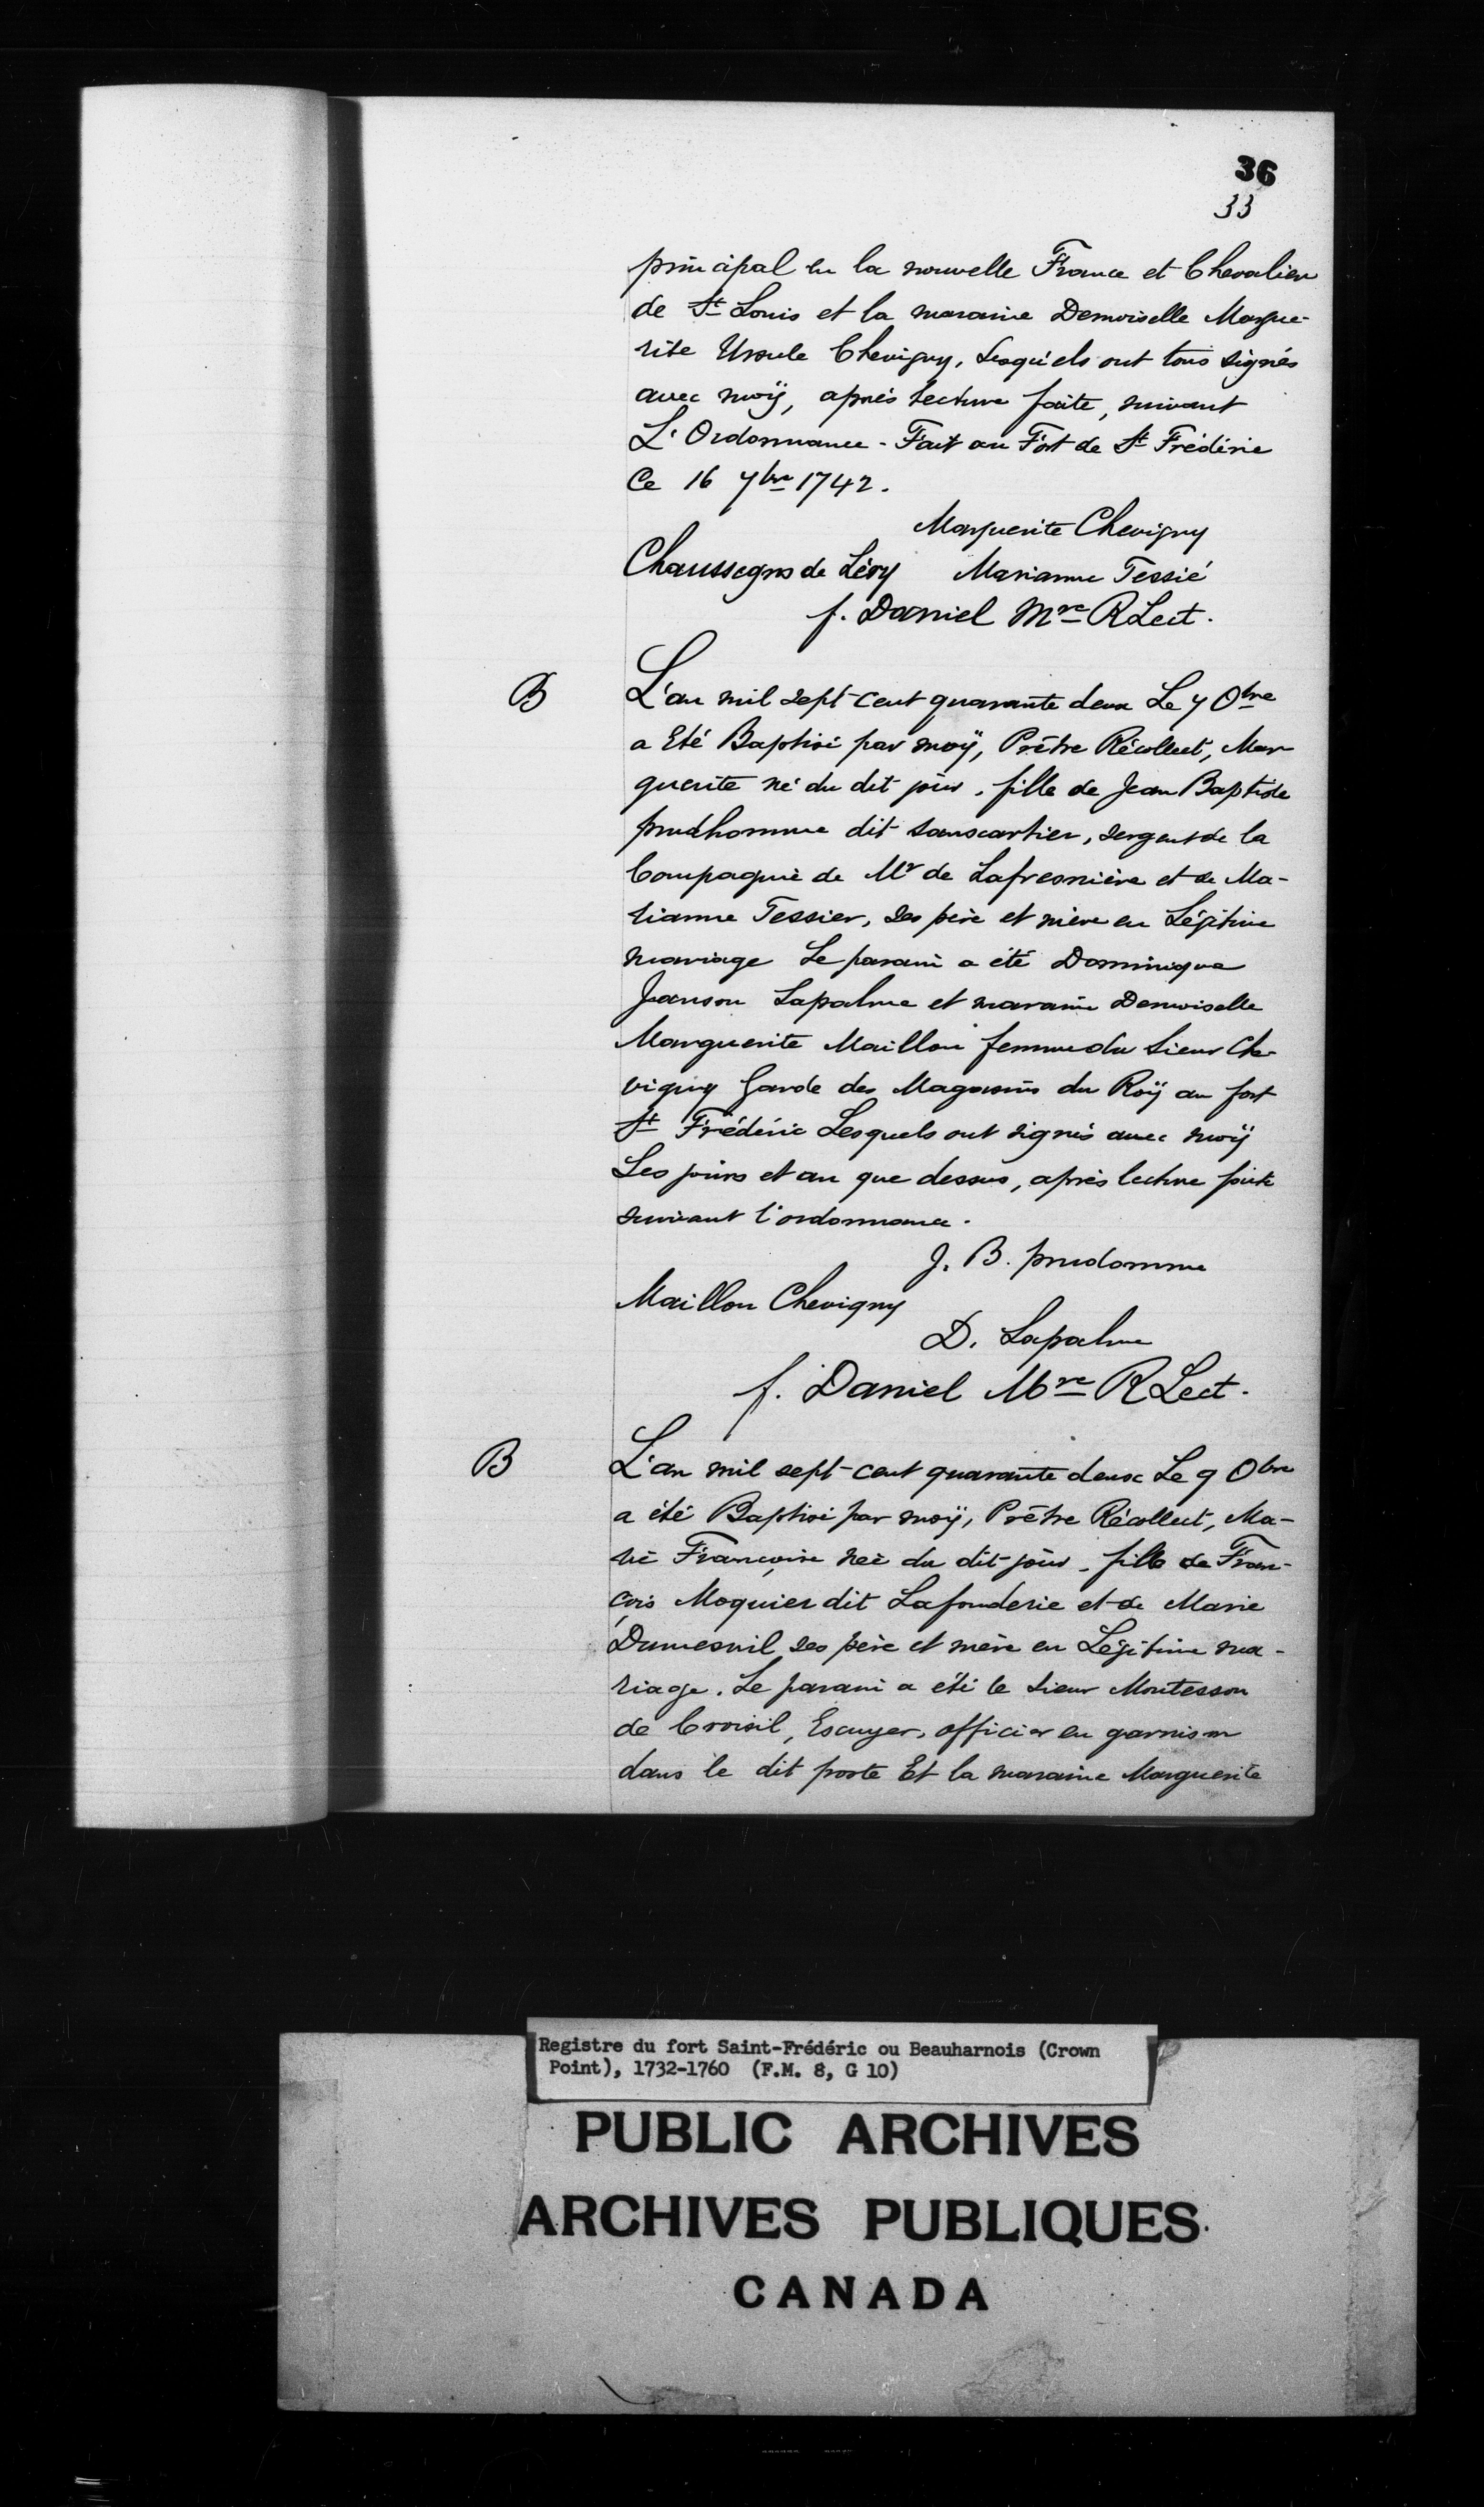 36
33
principal en la nouvelle France et Chevalier
de St Louis et la maraine Demoiselle Margue-
rite Ursule Chevigny, Lesquels ont tous signés
avec moÿ, après lecture faite, suivant
L'Ordonnance - Fait au Fort de St Frédéric
Ce 16 7bre 1742.
Marguerite Chevigny
Chaussegros de Léry Marianne Tessié
f. Daniel Mre RLect.
B L'an mil sept-cent quarante deux Le 7 Obre
a Eté Baptisé par moÿ, Prêtre Récollect, Mar
guerite né du dit jour, fille de Jean Baptiste
prudhomme dit sanscartier, sergent de la
Compagnie de Mr de Lafresnière et de Ma-
rianne Tessier, ses père et mère en Légitime
mariage Le parain a été Dominique
Janson Lapalme et maraine Demoiselle
Marguerite Maillou femme du Sieur Che-
vigny Garde des Magasins du Roÿ au fort
St Frédéric Lesquels ont signés avec moÿ
Les jours et an que dessus, après lecture faite
suivant l'ordonnance.
J. B. prudomme
Maillou Chevigny
D. Lapalme
f. Daniel Mre RLect.
B L'an mil sept-cent quarante deux Le 9 Obre
a été Baptisé par moÿ, Prêtre Récollect, Ma-
rie Françoise née du dit jour, fille de Fran-
çois Moquier dit Lafonderie et de Marie
Dumesnil, ses père et mère en Légitime ma-
riage. Le parain a été le Sieur Montesson
de Croisil, Escuyer, officier en garnison
dans le dit poste Et la maraine Marguerite
Registre du fort Saint-Frédéric ou Beauharnois (Crown
Point), 1732-1760 (F.M. 8, G 10)
PUBLIC ARCHIVES
ARCHIVES PUBLIQUES
CANADA